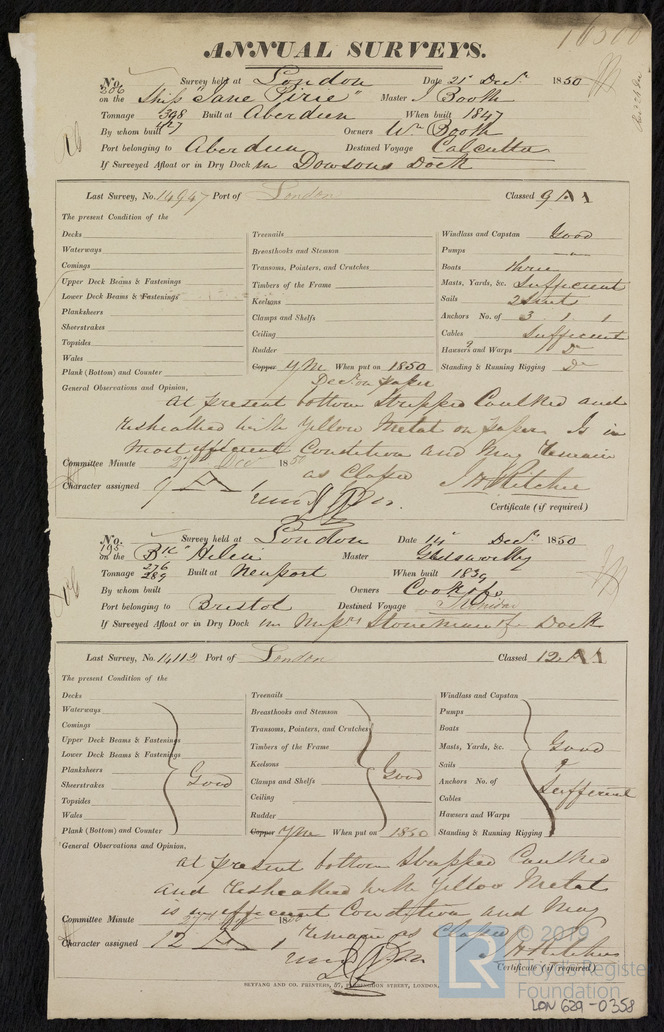 ANNUAL SURVEYS.
No. 206 Survey held at London Date 21st Decr. 1850
on the Ship "Jane Pirie" Master J Booth
Tonnage 398 427 Built at Aberdeen When built 1847
By whom built Owners Wm Booth
Port belonging to Aberdeen Destined Voyage Calcutta
If Surveyed Afloat or in Dry Dock in Dowsons Dock
Last Survey, No. 14947 Port of London Classed 9 A 1
The present Condition of the
Decks Treenails Windlass and Capstan Good
Waterways Breasthooks and Stemson Pumps
Comings Transoms, Pointers, and Crutches Boats three
Upper Deck Beams & Fastenings Timbers of the Frame Masts, Yards, &c. Sufficient
Lower Deck Beams & Fastenings Keelsons Sails 2 Suits
Planksheers Clamps and Shelfs Anchors No. of 3 1 1
Sheerstrakes Ceiling Cables Sufficient
Topsides Rudder Hawsers and Warps Do
Wales Copper YM When put on 1850 Standing & Running Rigging Do
Plank (Bottom) and Counter Decr. on paper
General Observations and Opinion,
At present bottom Stripped Caulked and
Resheathed with Yellow Metal on paper Is in
most efficient Condition and May Remain
as Classed J H Ritchie
Committee Minute 27 Decr 1850
Character assigned 9 A 1
Certificate (if required)
No. 195 Survey held at London Date 14 Decr. 1850
on the Bk Helen Master
Tonnage 276 289 Built at Newport When built 1839
By whom built Owners Cook & Co
Port belonging to Bristol Destined Voyage
If Surveyed Afloat or in Dry Dock in Messrs Stoneman & Co Dock
Last Survey, No. Port of London Classed 12 A 1
The present Condition of the
Decks Treenails Windlass and Capstan
Waterways Breasthooks and Stemson Pumps
Comings Transoms, Pointers, and Crutches Boats
Upper Deck Beams & Fastenings Timbers of the Frame Masts, Yards, &c. Good
Lower Deck Beams & Fastenings Keelsons Sails &
Planksheers Good Clamps and Shelfs Good Anchors No. of Sufficient
Sheerstrakes Ceiling Cables
Topsides Rudder Hawsers and Warps
Wales Copper YM When put on 1850 Standing & Running Rigging
Plank (Bottom) and Counter
General Observations and Opinion,
At present bottom Stripped Caulked
and Resheathed with Yellow Metal
is in efficient Condition and May
Remain as Classed J H Ritchie
Committee Minute 1850
Character assigned 12 A 1
Certificate (if required)
SEYFANG AND CO. PRINTERS, 57, FARRINGDON STREET, LONDON.
© 2019
LR Lloyd's Register
Foundation
LON 629-0358